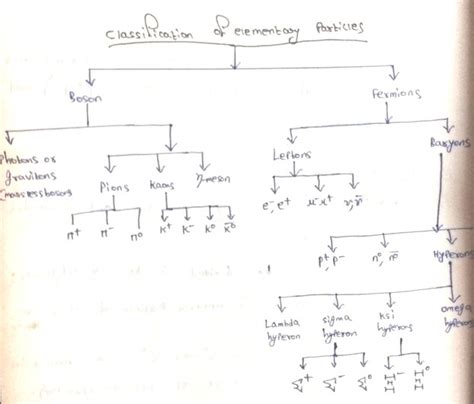 Classification of elementary Particles
Boson Fermions
Photons or
gravitons
(massless bosons)
Pions Kaons η-meson
Leptons Baryons
π⁺ π⁻ π⁰ K⁺ K⁻ K⁰ K̅⁰
e⁻, e⁺ μ⁻ μ⁺
p⁺, p⁻ n⁰, n̅⁰ Hyperons
Lambda
hyperon
sigma
hyperon
ksi
hyperons
omega
hyperon
Σ⁺ Σ⁻ Σ⁰ Ξ⁻ Ξ⁰